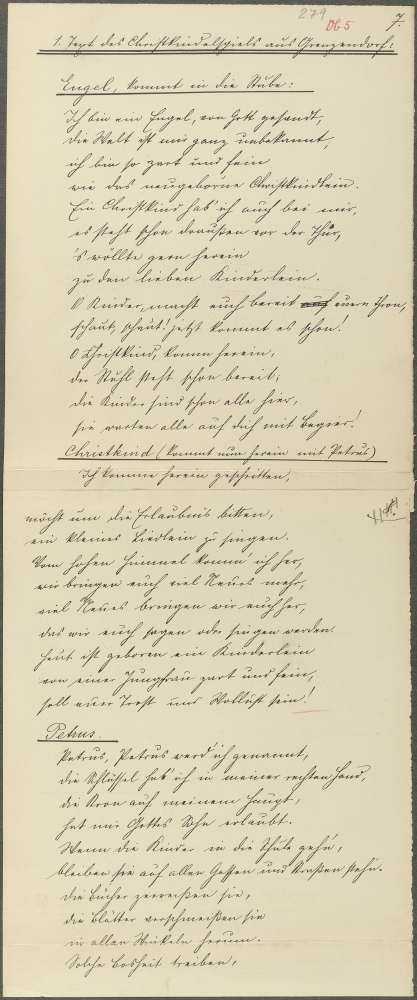 279 D65 7
1. Text des Christkindelspiels aus Grenzendorf:
Engel, kommt in die Stube:
Ich bin ein Engel, von Gott gesandt,
die Welt ist mir ganz unbekannt,
ich bin so zart und fein
wie das neugeborne Christkindlein.
Ein Christkind hab' ich auch bei mir,
es steht schon draußen vor der Thür,
's wöllte gern herein
zu den lieben Kinderlein.
O Kinder, macht euch bereit auf euern Thron,
schaut, schaut! jetzt kommt es schon!
O Christkind, komm herein,
der Stuhl steht schon bereit,
die Kinder sind schon alle hier,
sie warten alle auf dich mit Begier!
Christkind (kommt nun herein mit Petrus)
Ich komme herein geschritten,
möcht um die Erlaubnis bitten,
ein kleines Liedlein zu singen.
Vom hohen Himmel komm' ich her,
wir bringen euch viel Neues mehr,
viel Neues bringen wir euch her,
das wir euch sagen oder singen werden.
Heut ist geboren ein Kinderlein
von einer Jungfrau zart und fein,
soll euer Trost und Wollust sein!
Petrus.
Petrus, Petrus werd' ich genannt,
die Schlüssel hab' ich in meiner rechten Hand,
die Kron auf meinem Haupt,
hat mir Gottes Sohn erlaubt.
Wenn die Kinder in die Schule gehn,
bleiben sie auf allen Gassen und Straßen stehn.
Die Bücher zerreißen sie,
die Blätter verschmeißen sie
in allen Winkeln herum.
Solche Bosheit treiben,